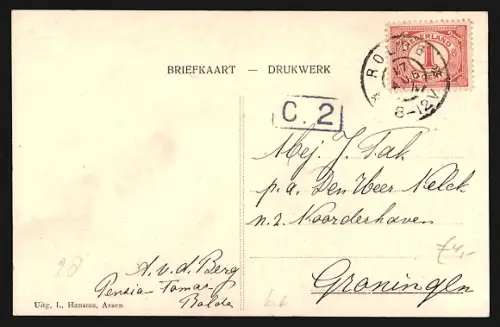 BRIEFKAART — DRUKWERK
NEDERLAND
1
ROLDE
17 AUG
8-12V
C. 2
Mej. J. Tak
p.a. Den Heer Nelck
n.z. Noorderhaven
Groningen
f4,-
A. v. d. Berg
Pension Tomas
Rolde
Uitg. L. Hansma, Assen